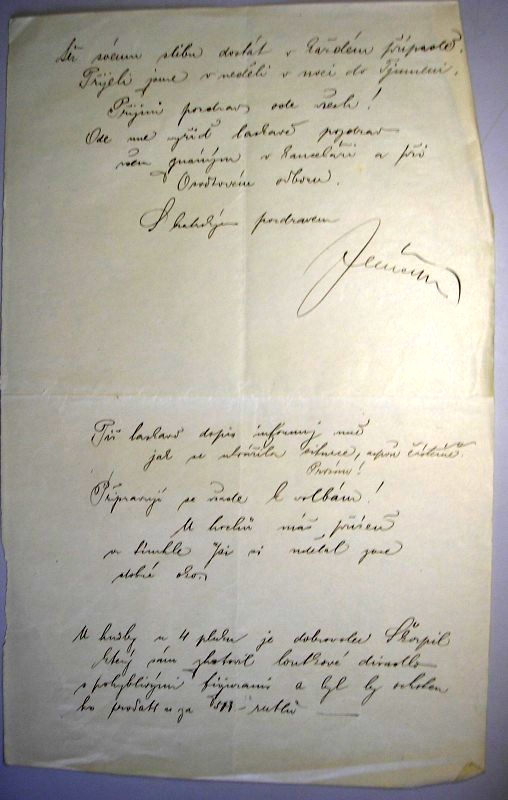 svému slibu dostát v každém případě.
Přijeli jsme v neděli v noci do Tjumeni.
Přijmi pozdrav ode všech!
Ode mne vyřiď laskavě pozdrav
všem známým v kanceláři a při
odboru.
S pozdravem
Piš laskavě dopis informuj nás
jak se utvářila situace, aspoň částečně.
Prosím!
Připravují se všade k volbám!
U hochů náš
v si udělal jsme
dobré oko.
U hudby u 4 pluku je dobrovolec Škarpil
který sám zhotovil loutkové divadlo
s pohyblivými figurami a byl by ochoten
ho prodati za rublů